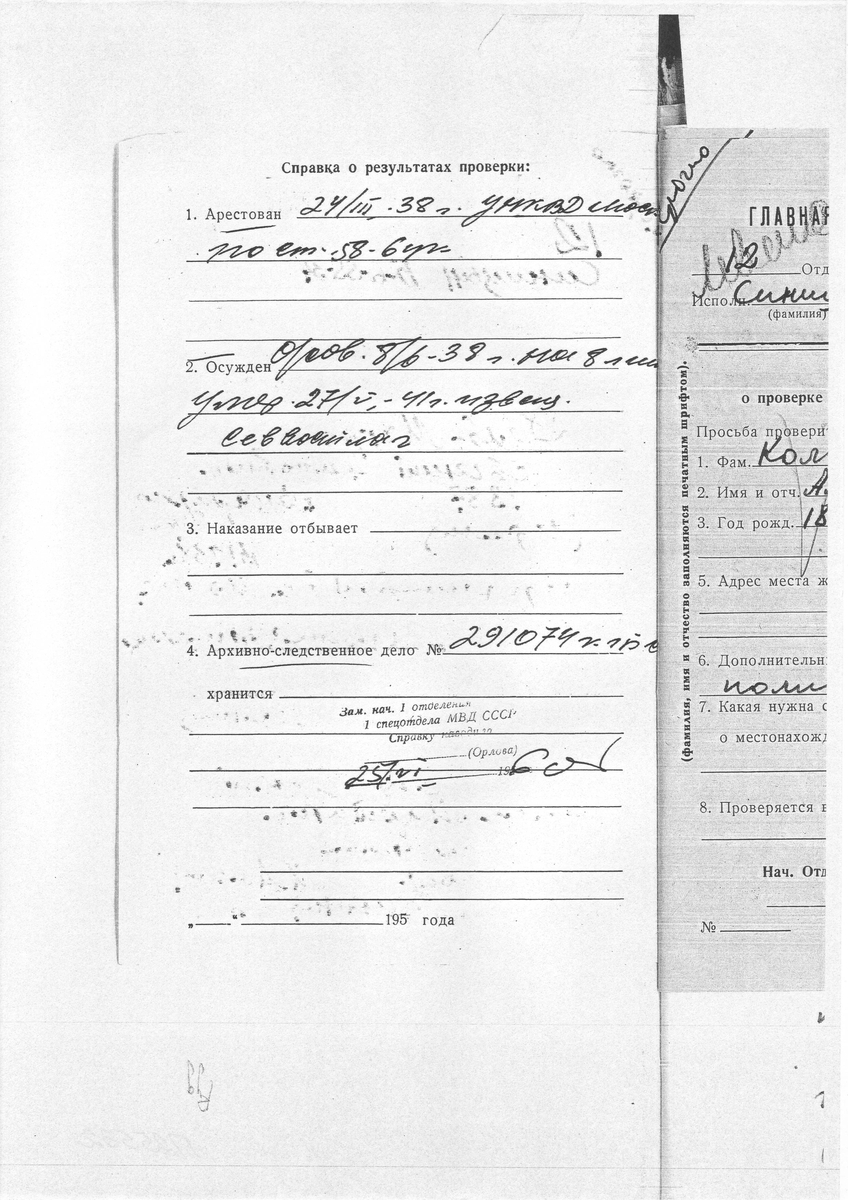 Справка о результатах проверки:
1. Арестован 24/III-38 г. УНКВД Моск
по ст. 58-6 ук
2. Осужден 8/6-38 г. на 8 лет
Умер 27/VI-41 г. извещ.
Севвостлаг
3. Наказание отбывает
4. Архивно-следственное дело № 291074
хранится
Зам. нач. 1 отделения
1 спецотдела МВД СССР
Справку наводила
(Орлова)
25/VI
„ “ 195 года
срочно
ГЛАВНАЯ
12 Отд
Исполн. Сини
(фамилия)
о проверке
Просьба проверит
1. Фам. Кол
2. Имя и отч. А
3. Год рожд. 18
5. Адрес места ж
6. Дополнительн
поли
7. Какая нужна с
о местонахожд
8. Проверяется в
Нач. Отд
№
(фамилия, имя и отчество заполняются печатным шрифтом).